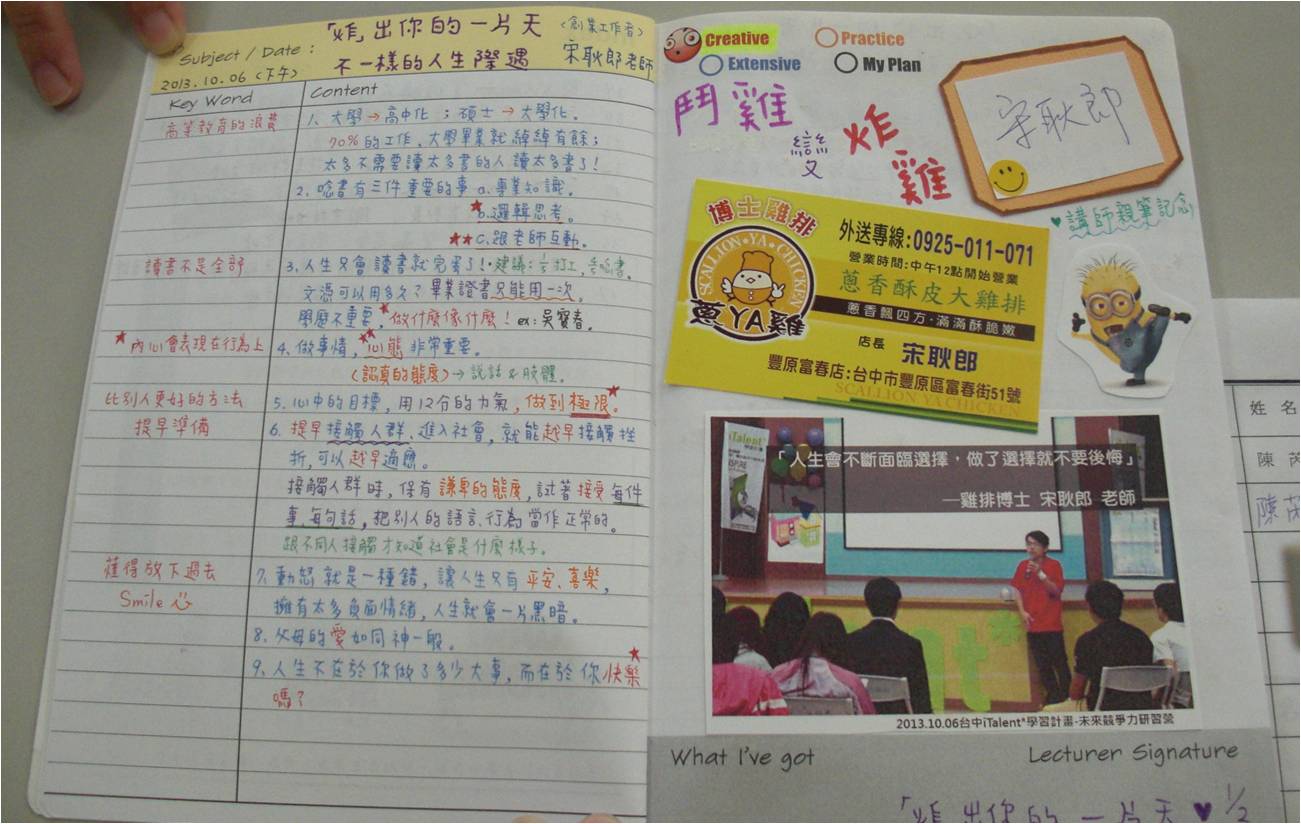 Subject / Date :
2013.10.06 (下午)
「炸」出你的一片天
不一樣的人生際遇
<創業工作者>
宋耿郎老師
Key Word
Content
高等教育的浪費
1. 大學→高中化 ; 碩士→大學化。
70%的工作, 大學畢業就綽綽有餘;
太多不需要讀太多書的人讀太多書了!
2. 唸書有三件重要的事 a.專業知識。
★b.邏輯思考。
★★c.跟老師互動。
讀書不是全部
3. 人生只會讀書就完蛋了!·建議:½打工, ½唸書。
文憑可以用多久? 畢業證書只能用一次。
學歷不重要,★做什麼像什麼! ex:吳寶春。
★內心會表現在行為上
4. 做事情,★★心態非常重要。
(認真的態度)→說話&肢體。
比別人更好的方法
5. 心中的目標, 用12分的力氣, 做到極限★。
提早準備
6. 提早接觸人群、進入社會, 就能越早接觸挫
折, 可以越早適應。
接觸人群時, 保有謙卑的態度, 試著接受每件
事、每句話, 把別人的語言、行為當作正常的。
跟不同人接觸才知道社會是什麼樣子。
懂得放下過去
7. 動怒就是一種錯, 讓人生只有平安、喜樂,
Smile
擁有太多負面情緒, 人生就會一片黑暗。
8. 父母的愛如同神一般。
9. 人生不在於你做了多少大事, 而在於你快樂★
嗎?
Creative
Practice
Extensive
My Plan
鬥雞
變
炸雞
宋耿郎
♥講師親筆記念
博士雞排
SCALLION•YA•CHICKEN
蔥YA雞
外送專線:0925-011-071
營業時間:中午12點開始營業
蔥香酥皮大雞排
蔥香飄四方·滿滿酥脆嫩
店長 宋耿郎
豐原富春店:台中市豐原區富春街51號
SCALLION YA CHICKEN
iTalent
「人生會不斷面臨選擇，做了選擇就不要後悔」
—雞排博士 宋耿郎 老師
2013.10.06台中iTalent*學習計畫-未來競爭力研習營
What I've got
Lecturer Signature
「炸」出你的一片天 ♥ 1/2
姓 名
陳 芮
陳芮